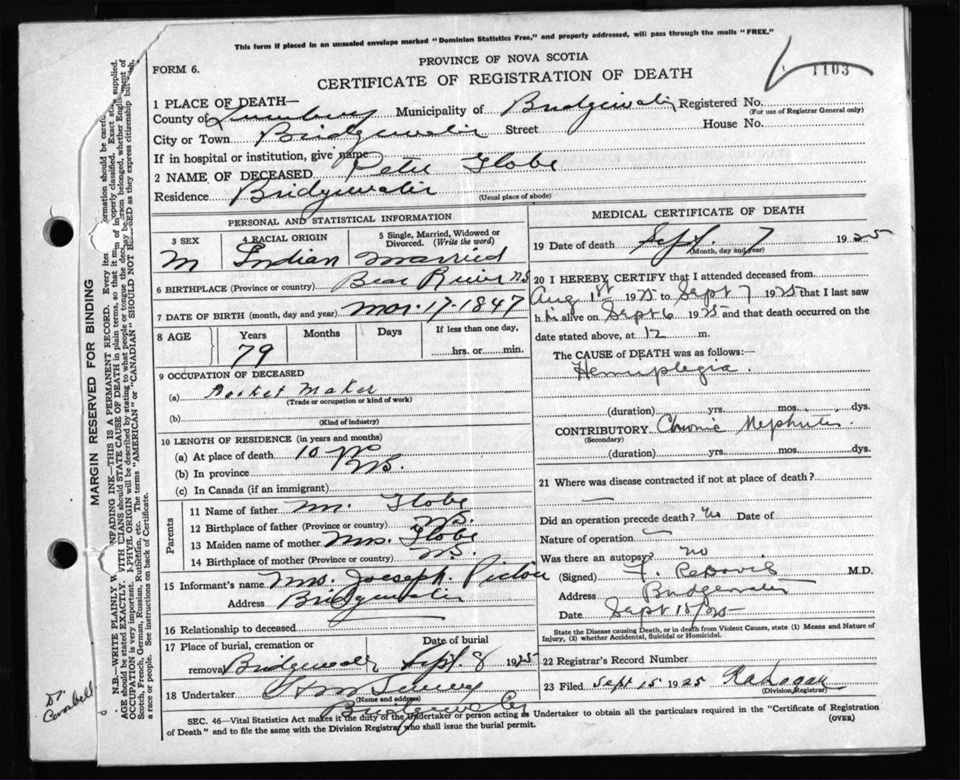 This form if placed in an unsealed envelope marked "Dominion Statistics Free," and properly addressed, will pass through the mails "FREE."
PROVINCE OF NOVA SCOTIA
1103
FORM 6.
CERTIFICATE OF REGISTRATION OF DEATH
1 PLACE OF DEATH—
County of Lunenburg Municipality of Bridgewater Registered No.
(For use of Registrar General only)
City or Town Bridgewater Street House No.
If in hospital or institution, give name
2 NAME OF DECEASED Peter Globe
Residence Bridgewater
(Usual place of abode)
PERSONAL AND STATISTICAL INFORMATION
3 SEX 4 RACIAL ORIGIN 5 Single, Married, Widowed or Divorced. (Write the word)
M Indian married
6 BIRTHPLACE (Province or country) Bear River N.S
7 DATE OF BIRTH (month, day and year) Mar. 17-1847
8 AGE Years Months Days If less than one day,
79 hrs. or min.
9 OCCUPATION OF DECEASED
(a) Maker
(Trade or occupation or kind of work)
(b)
(Kind of industry)
10 LENGTH OF RESIDENCE (in years and months)
(a) At place of death 10
(b) In province N.S.
(c) In Canada (if an immigrant)
Parents
11 Name of father Mr. Globe
12 Birthplace of father (Province or country) N.S.
13 Maiden name of mother Mrs. Globe
14 Birthplace of mother (Province or country) N.S.
15 Informant's name Mrs. Joeseph Pictou
Address Bridgewater
16 Relationship to deceased
17 Place of burial, cremation or removal Date of burial
Bridgewater Sept. 8 1925
18 Undertaker
(Name and address)
Bridgewater
MEDICAL CERTIFICATE OF DEATH
19 Date of death Sept. 7 1925
(Month, day and year)
20 I HEREBY CERTIFY that I attended deceased from
Aug 1st 1925 to Sept 7 1925 that I last saw
him alive on Sept 6 1925 and that death occurred on the
date stated above, at 12 m.
The CAUSE OF DEATH was as follows:—
Hemiplegia.
(duration) yrs. mos. dys.
CONTRIBUTORY Chronic Nephritis
(Secondary)
(duration) yrs. mos. dys.
21 Where was disease contracted if not at place of death?
Did an operation precede death? no Date of
Nature of operation
Was there an autopsy? no
(Signed) M.D.
Address Bridgewater
Date Sept 15/25
State the Disease causing Death, or in death from Violent Causes, state (1) Means and Nature of Injury, (2) whether Accidental, Suicidal or Homicidal.
22 Registrar's Record Number
23 Filed Sept 15 1925
(Division Registrar)
SEC. 46—Vital Statistics Act makes it the duty of the Undertaker or person acting as Undertaker to obtain all the particulars required in the "Certificate of Registration
of Death" and to file the same with the Division Registrar who shall issue the burial permit.
(OVER)
MARGIN RESERVED FOR BINDING
N.B.—WRITE PLAINLY UNFADING INK—THIS IS A PERMANENT RECORD.
See instructions on back of Certificate.
Dr